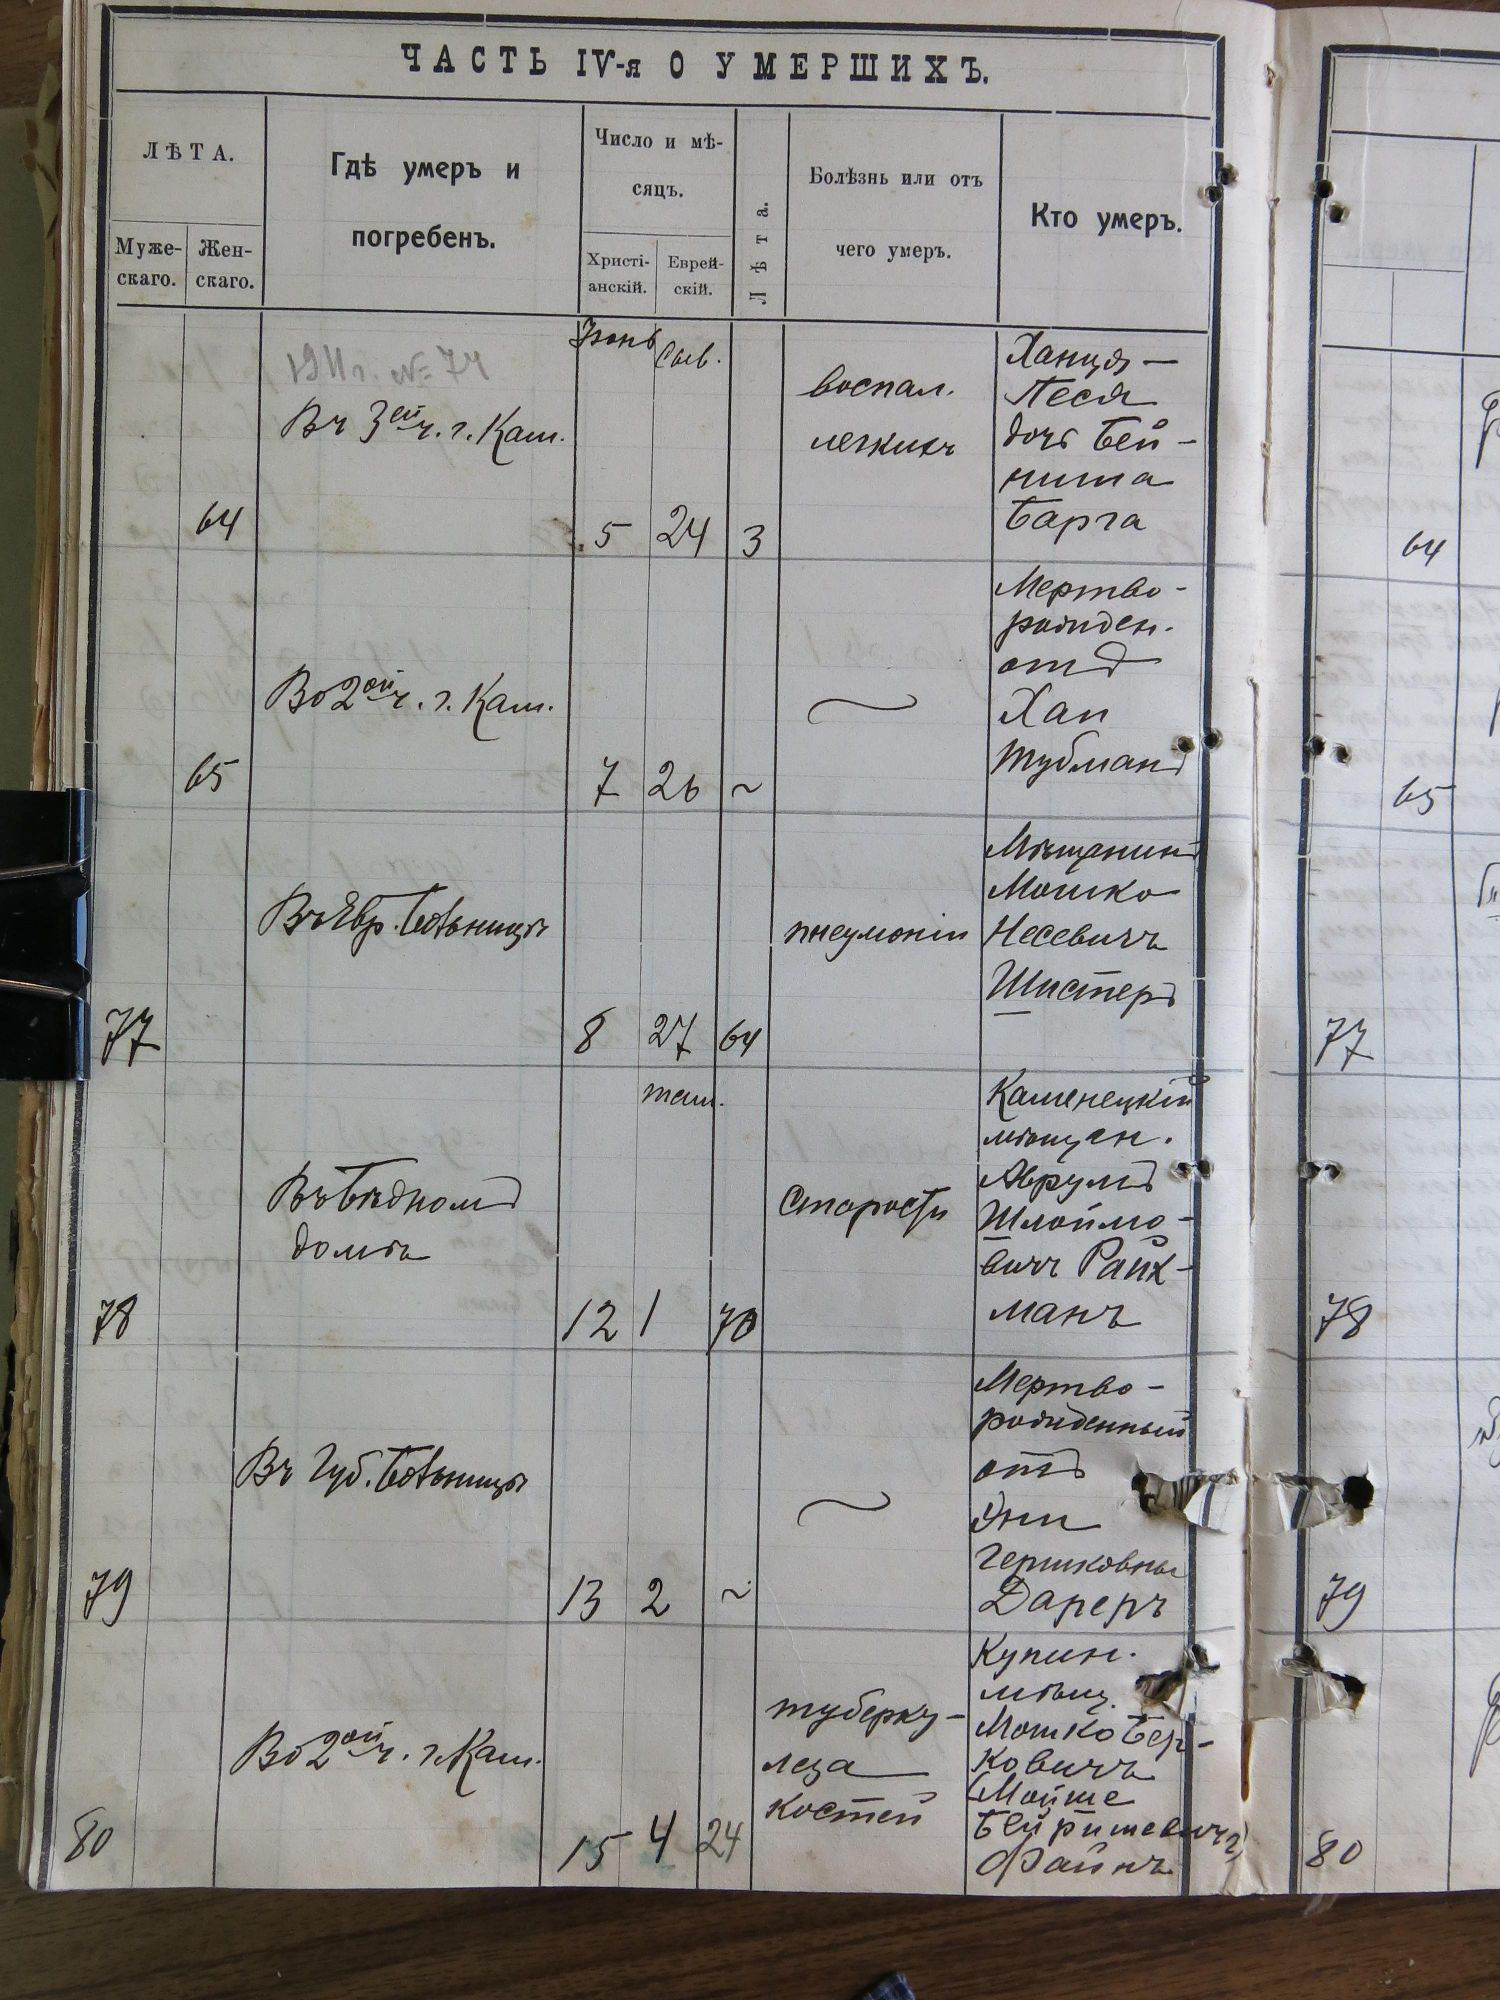 ЧАСТЬ IV-я О УМЕРШИХЪ.
ЛѢТА.
Муже-
скаго.
Жен-
скаго.
Гдѣ умеръ и
погребенъ.
Число и мѣ-
сяцъ.
Христі-
анскій.
Еврей-
скій.
Лѣта.
Болѣзнь или отъ
чего умеръ.
Кто умеръ.
1911 г. № 74
Іюнь
Сив.
64
Въ 3ей ч. г. Кам.
5
24
3
воспал.
легкихъ
Ханця-
Песя
дочь Бей-
ниша
Барга
64
65
Во 2ой ч. г. Кам.
7
26
~
~
Мертво-
рожден.
отъ
Хаи
Тубманъ
65
77
Въ Евр. Больницѣ
8
27
64
пнеумоніи
Мѣщанинъ
Мошко
Несевичъ
Шистеръ
77
там.
78
Въ Бѣдномъ
домѣ
12
1
70
Старости
Каменецкій
мѣщан.
Аврумъ
Шлоймо-
вичъ Райх-
манъ
78
79
Въ Губ. Больницѣ
13
2
~
~
Мертво-
рожденный
отъ
Гершковны
Дареръ
79
80
Во 2ой ч. г. Кам.
15
4
24
туберку-
леза
костей
Купин.
мѣщ.
Мошко Бер-
ковичъ
(Мойше
Файнъ
80